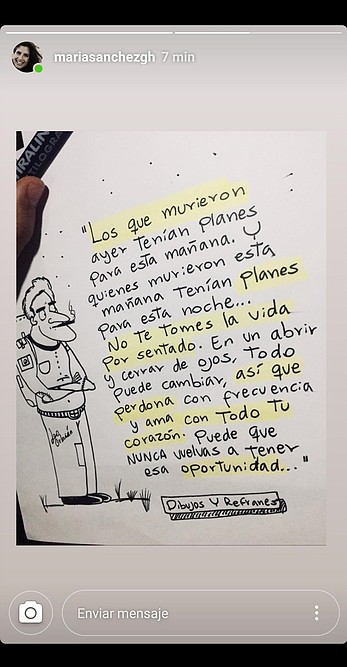 mariasanchezgh 7 min
"Los que murieron
ayer Tenían Planes
Para esta mañana. Y
quienes murieron esta
mañana Tenían Planes
Para esta noche...
No Te Tomes la vida
Por sentado. En un abrir
y cerrar de ojos, Todo
Puede cambiar, así que
perdona con frecuencia
y ama con Todo Tu
corazón. Puede que
NUNCA vuelvas a Tener
esa oportunidad..."
Dibujos Y Refranes
Enviar mensaje